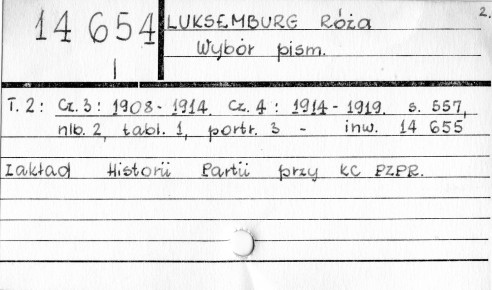 2.
14 654 LUKSEMBURG Róża
Wybór pism.
T. 2: Cz. 3: 1908-1914. Cz. 4: 1914-1919. s. 557,
nlb. 2, tabl. 1, portr. 3 - inw. 14 655
Zakład Historii Partii przy KC PZPR.